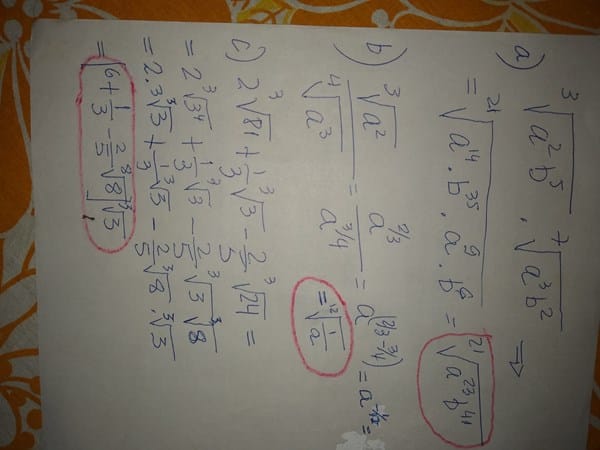 a) ∛(a²b⁵) · ⁷√(a³b²) ⇒
= ²¹√(a¹⁴ · b³⁵ · a⁹ · b⁶) = ²¹√(a²³b⁴¹)
b) ∛(a²) / ⁴√(a³) = a^(2/3) / a^(3/4) = a^(2/3 - 3/4) = a^(-1/12) =
= ¹²√(1/a)
c) 2∛81 + 1/3 ∛3 - 2/5 ∛24 =
= 2∛(3⁴) + 1/3 ∛3 - 2/5 ∛3 ∛8
= 2·3∛3 + 1/3 ∛3 - 2/5 ∛8 · ∛3
= [6 + 1/3 - 2/5 ∛8] ∛3